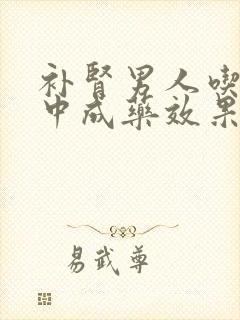 补肾男人喫
中成藥效果
易武尊